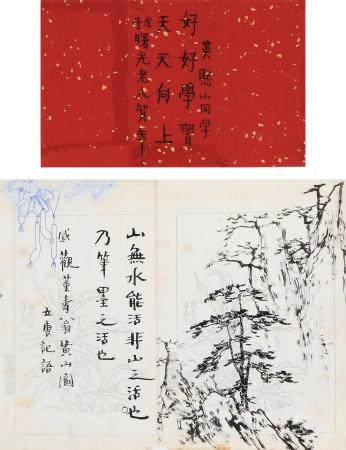 黄熙小同学
好好學習
天天向上
曙光老人賀年
山無水能活非山之活也
乃筆墨之活也
觀董青翁黄山圖
五庚記語